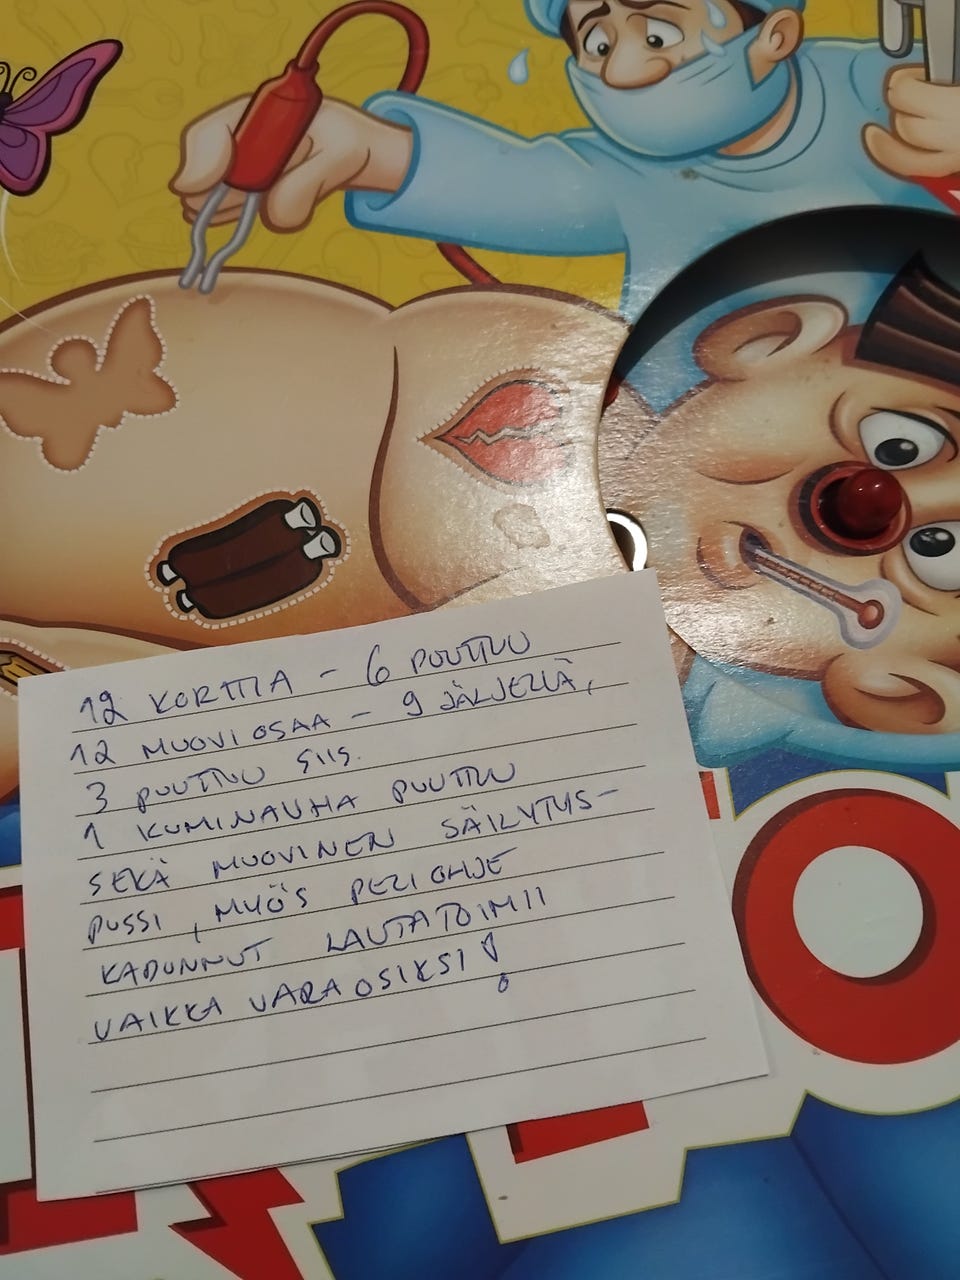 12 KORTTIA - 6 PUUTTUU
12 MUOVIOSAA - 9 JÄLJELLÄ,
3 PUUTTUU SIIS.
1 KUMINAUHA PUUTTUU
SEKÄ MUOVINEN SÄILYTYS-
PUSSI, MYÖS PELIOHJE
KADONNUT LAUTA TOIMII
VAIKKA VARAOSIKSI!
O